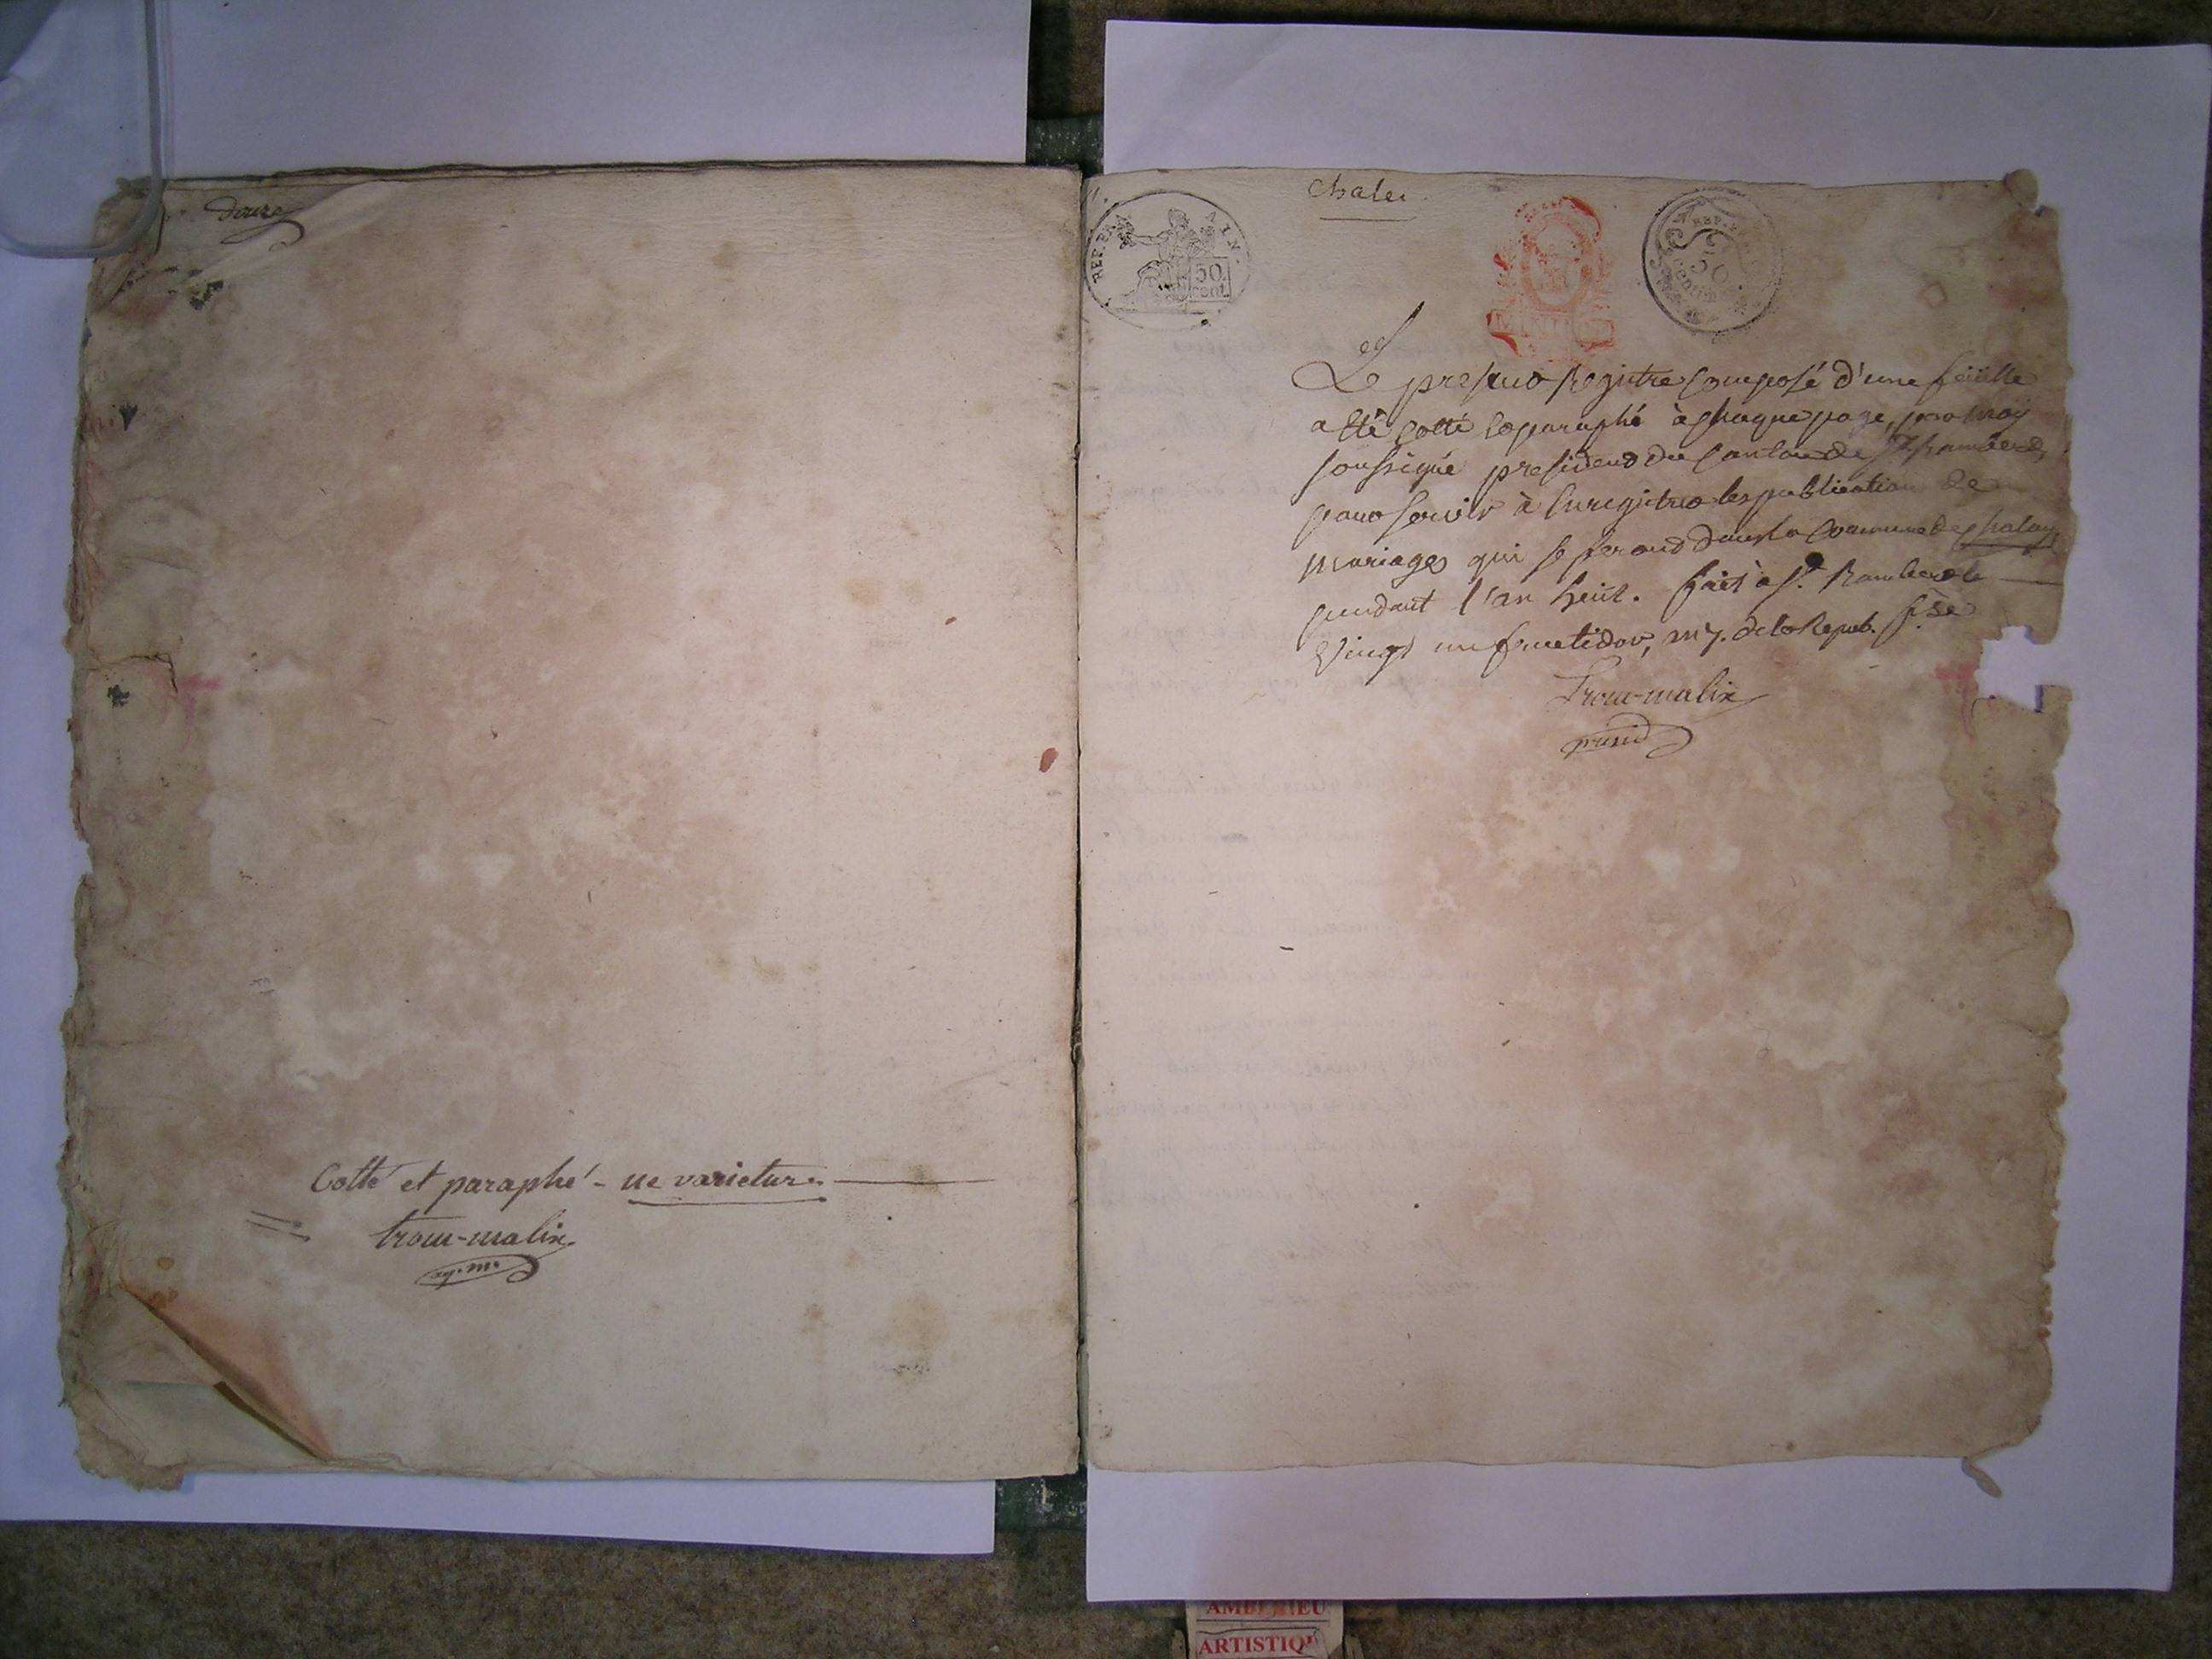 douze
Cotté et paraphé - ne varietur.
trom-malix
ag. m.
Chaley
REP. FRA AIN.
50 cent.
50 centim
Le present Registre composé d'une feüille
a été cotté et paraphé à chaque page, par moy
soussigné president du canton de St. Rambert,
pour servir à Enregistrer les publication de
mariages qui se feront dans la Commune de Chaley
pendant l'an huit. fait à St. Rambert le
Vingt un fructidor, an 7. de la Repub. f.se
trom-malix
presid
AMBERIEU
ARTISTIQU